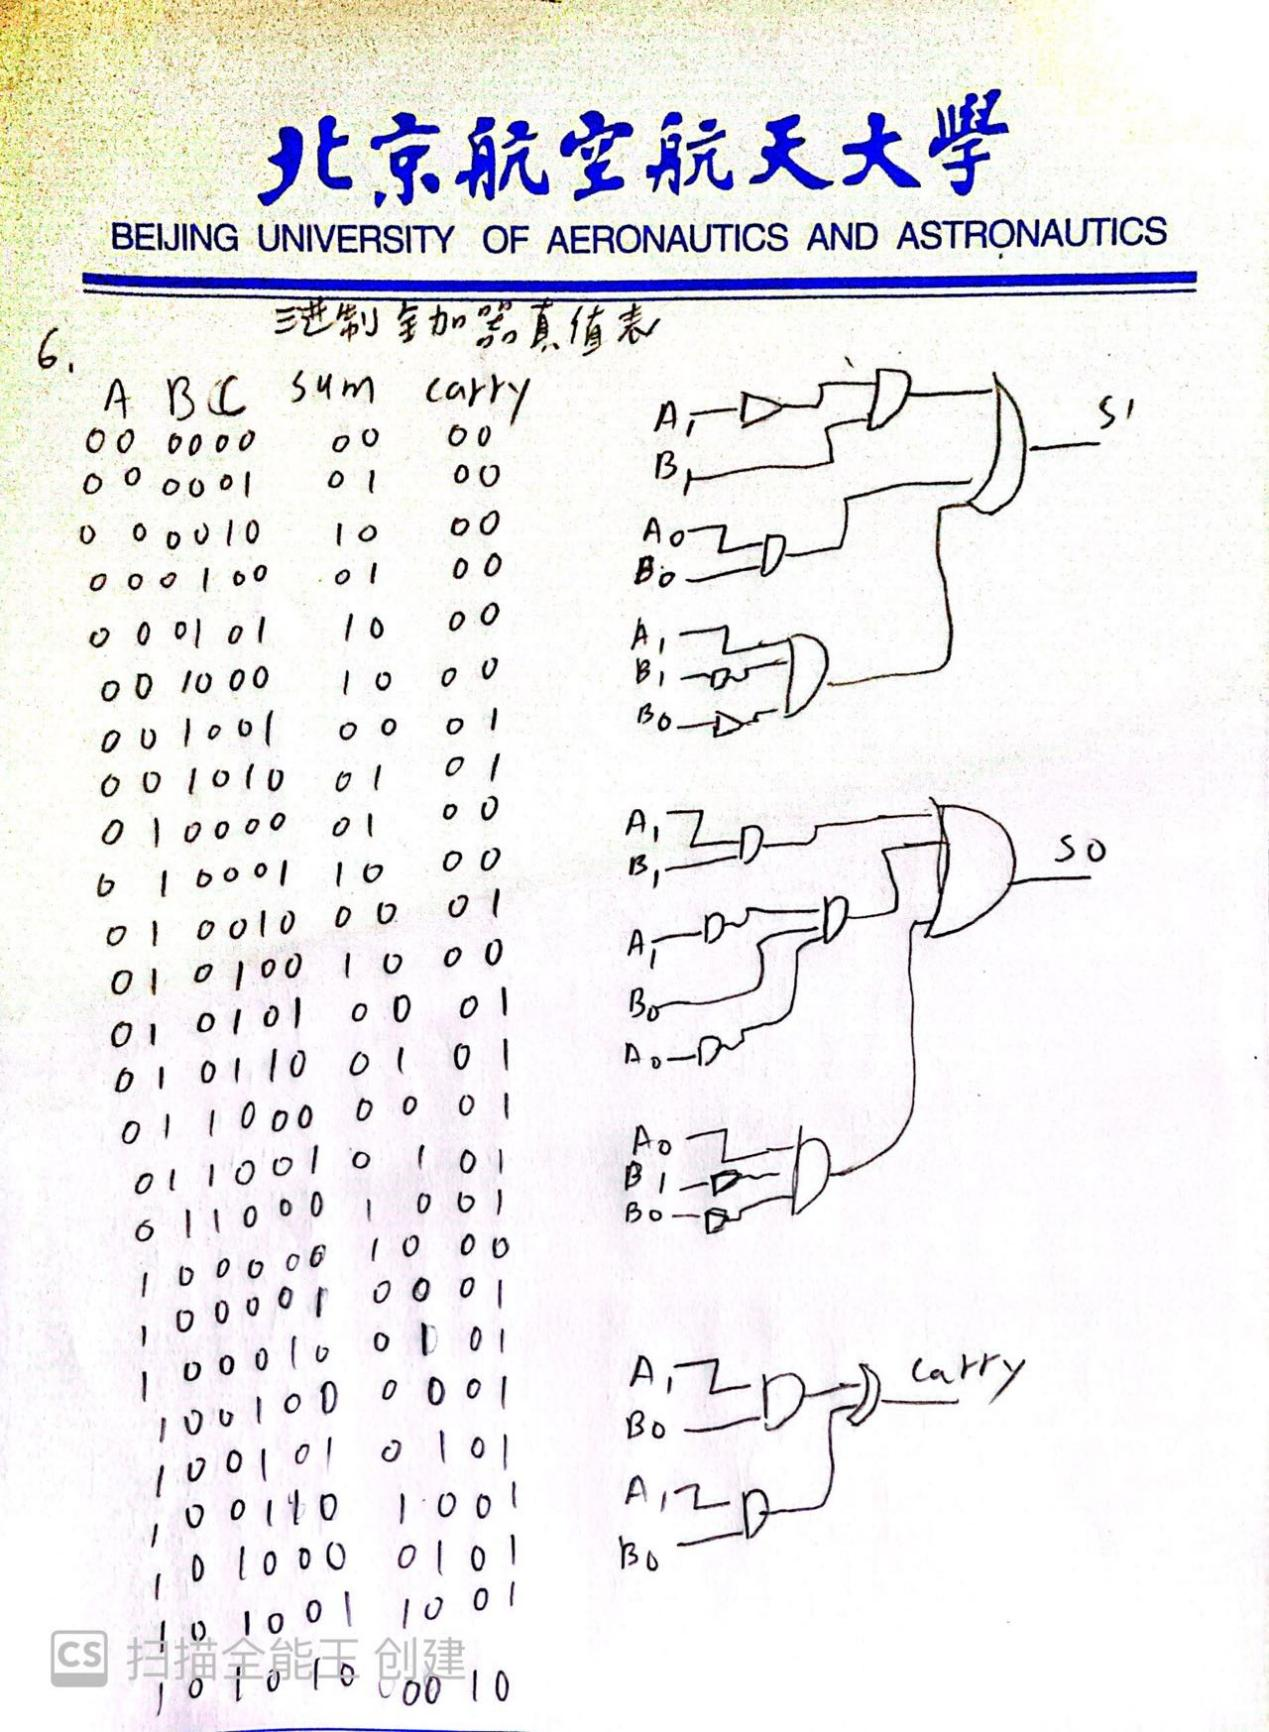 北京航空航天大學
BEIJING UNIVERSITY OF AERONAUTICS AND ASTRONAUTICS
三进制全加器真值表
6.
A B C sum carry
00 0000 00 00
00 0001 01 00
00 0010 10 00
00 0100 01 00
00 0101 10 00
00 1000 10 00
00 1001 00 01
00 1010 01 01
01 0000 01 00
01 0001 10 00
01 0010 00 01
01 0100 10 00
01 0101 00 01
01 0110 01 01
01 1000 00 01
01 1001 01 01
01 1000 10 01
10 0000 10 00
10 0001 00 01
10 0010 01 01
10 0100 00 01
10 0101 01 01
10 0110 10 01
10 1000 01 01
10 1001 10 01
10 1010 00 10
A1
B1
S1
A0
B0
A1
B1
B0
A1
B1
S0
A1
B0
A0
A0
B1
B0
A1
B0
carry
A1
B0
CS 扫描全能王 创建